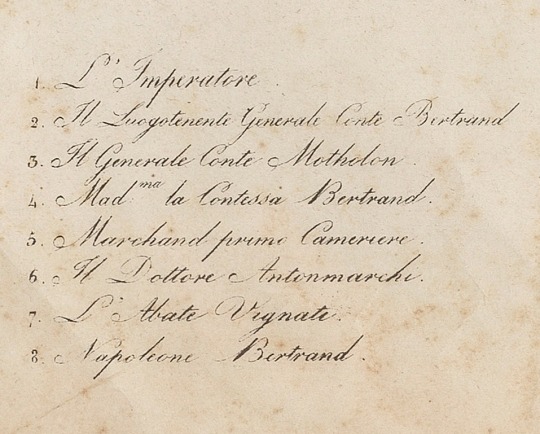 1. L'Imperatore.
2. Il Luogotenente Generale Conte Bertrand
3. Il Generale Conte Motholon.
4. Mad.ma la Contessa Bertrand.
5. Marchand primo Cameriere.
6. Il Dottore Antonmarchi.
7. L'Abate Vignati.
8. Napoleone Bertrand.